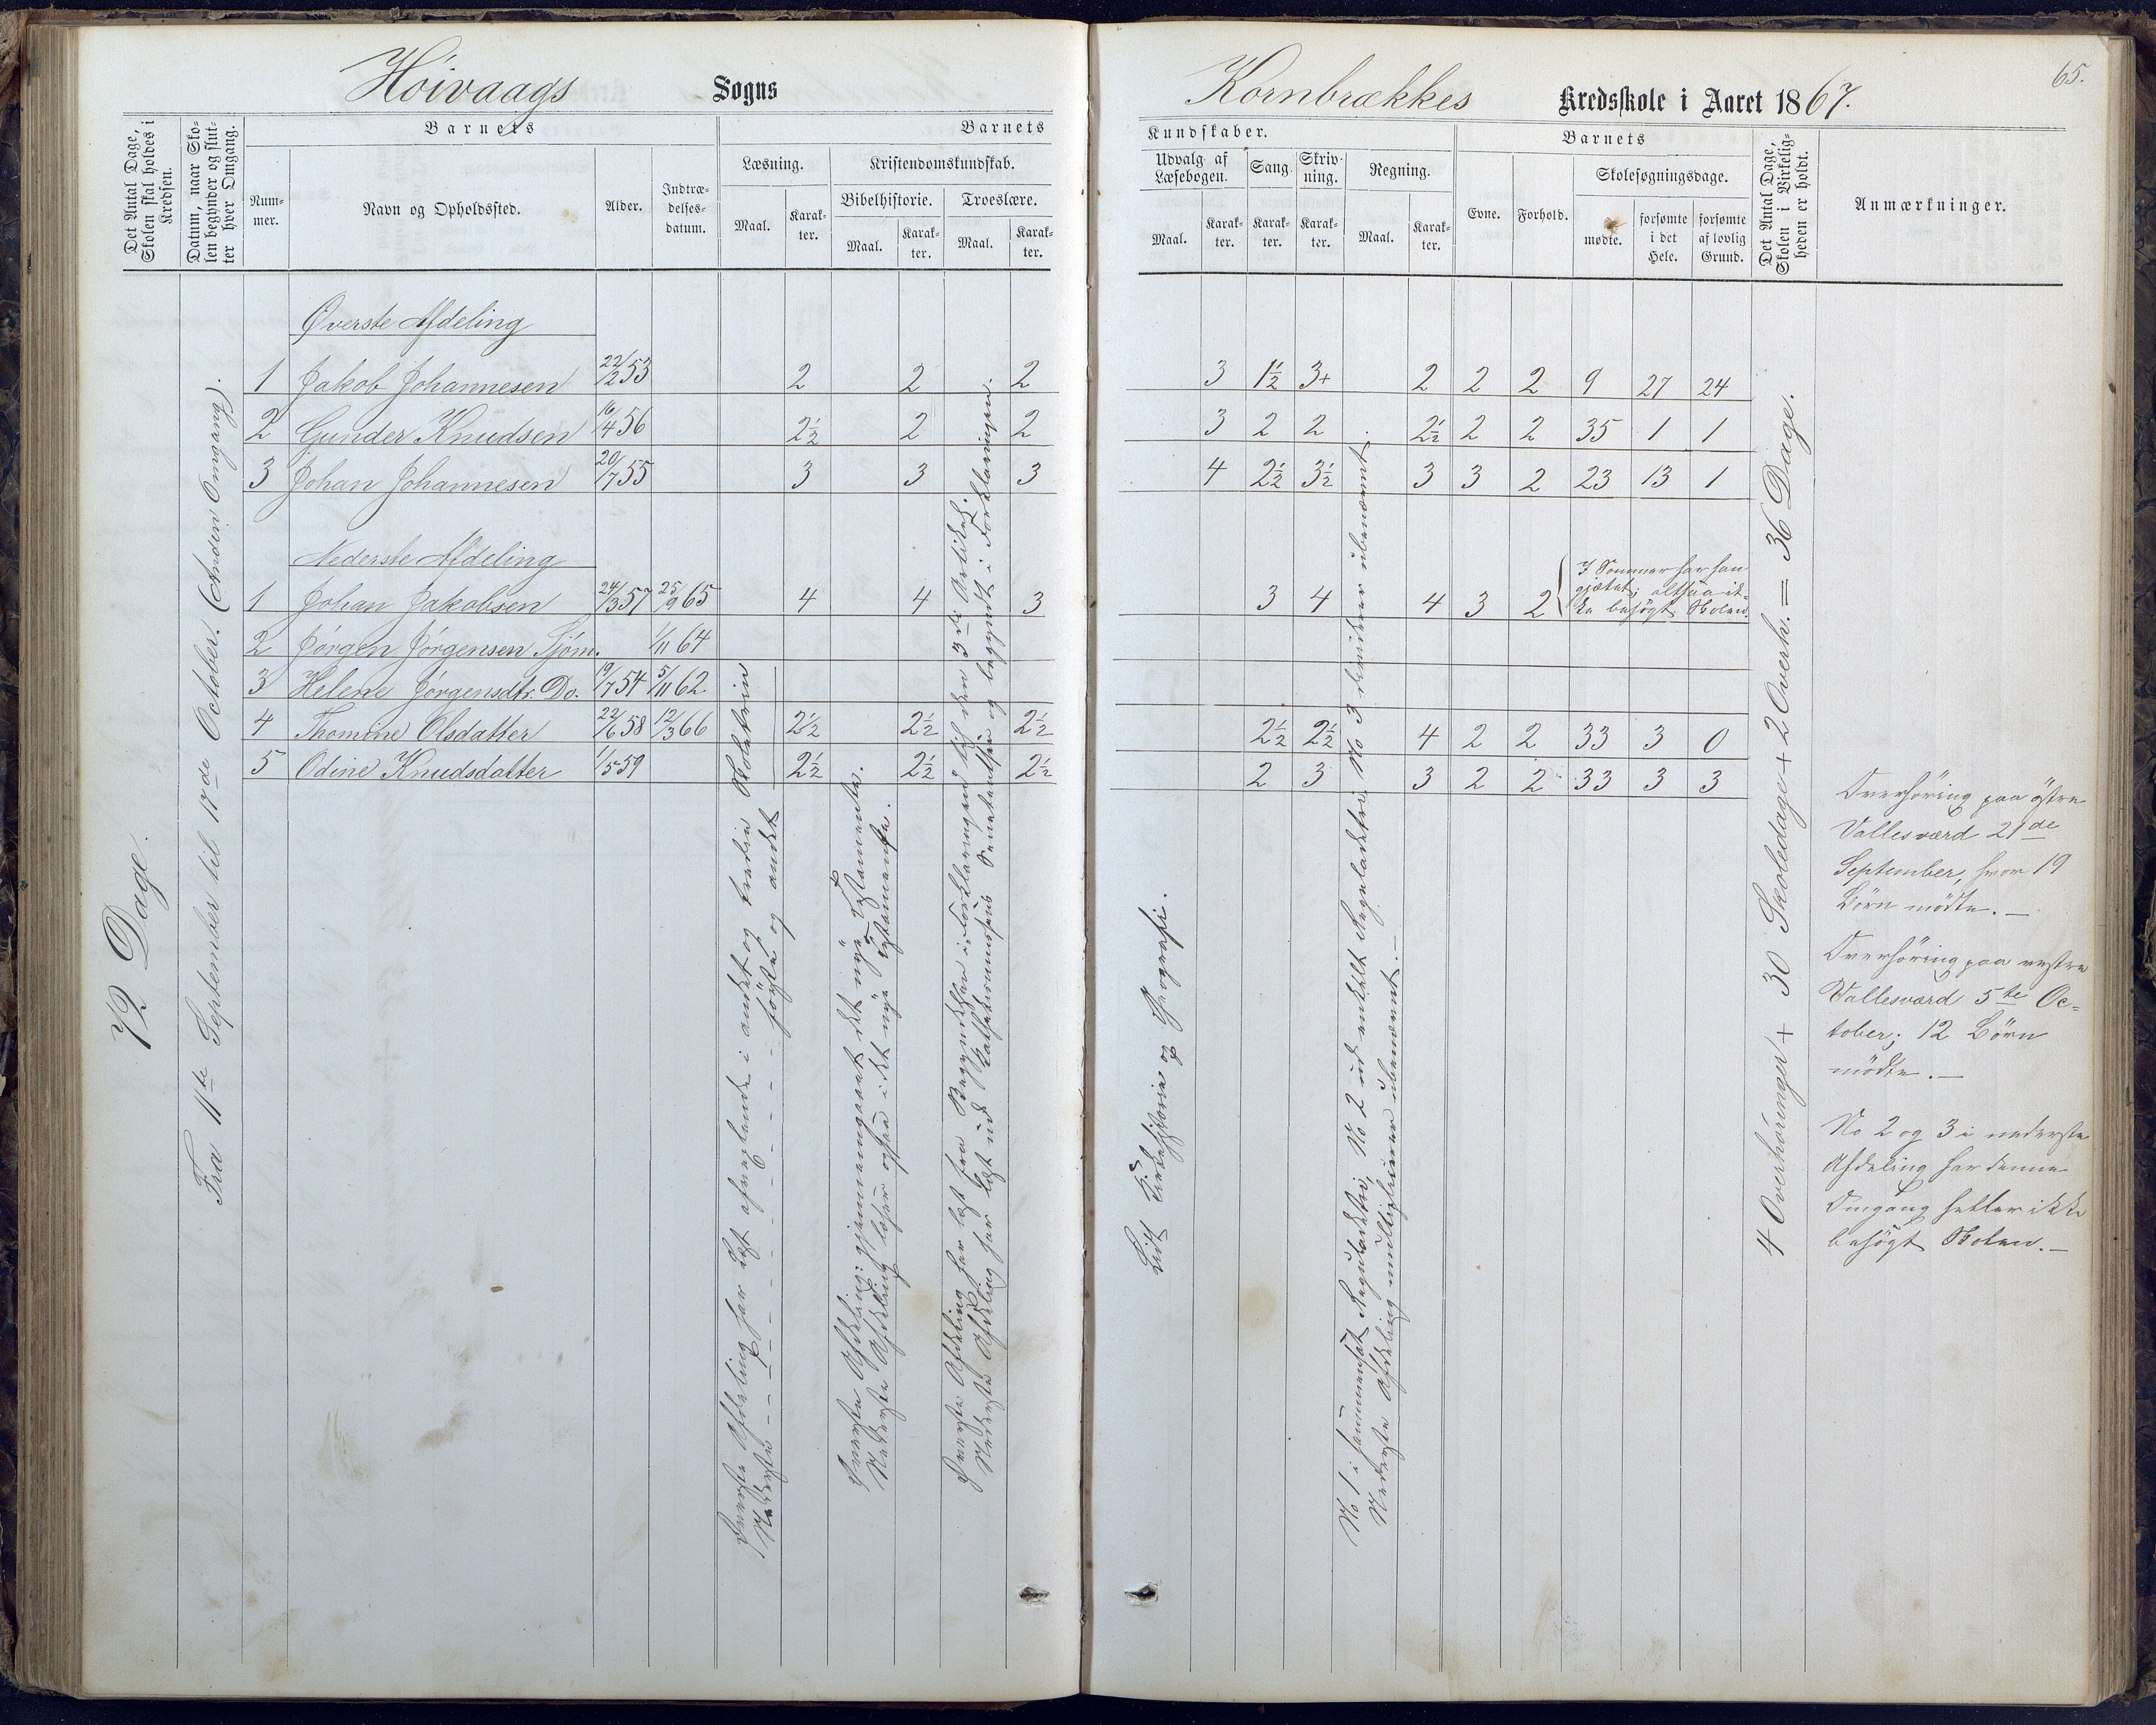 Höivaags Sogns
Det Antal Dage, Skolen skal holdes i Kredsen.
Datum, naar Skolen begynder og slutter hver Omgang.
Barnets
Nummer.
Navn og Opholdssted.
Alder.
Indtrædelsesdatum.
Barnets
Læsning.
Maal.
Karakter.
Kristendomskundskab.
Bibelhistorie.
Maal.
Karakter.
Troeslære.
Maal.
Karakter.
72 Dage.
Fra 11te September til 17de October. (Anden Omgang).
Øverste Afdeling
1 Jakob Johannesen 22/12 53 2 2 2
2 Gunder Knudsen 16/4 56 2½ 2 2
3 Johan Johannesen 20/7 55 3 3 3
Nederste Afdeling
1 Johan Jakobsen 24/3 57 25/9 65 4 4 3
2 Jørgen Jørgensen Sjöm. 1/11 64
3 Helene Jørgensdtr. Do. 19/7 54 5/11 62
4 Thomine Olsdatter 22/6 58 12/3 66 2½ 2½ 2½
5 Odine Knudsdatter 1/5 59 2½ 2½ 2½
Øverste Afdeling har læst afvexlende i andet og tredie Skoletrin
Nederste - - - - - - - første og andet
Øverste Afdeling: gjennemgaaet det nye Testamente.
Nederste Afdeling læser ogsaa i det nye Testamente.
Øverste Afdeling har læst fra Begyndelsen i Forklaringen til den 3die Artikel.
Nederste Afdeling har læst ud Kathekismussens og begyndt i Forklaringen.
65.
Kornbrækkes Kredsskole i Aaret 1867.
Kundskaber.
Udvalg af Læsebogen.
Maal.
Karakter.
Sang.
Karakter.
Skrivning.
Karakter.
Regning.
Maal.
Karakter.
Barnets
Evne.
Forhold.
Skolesøgningsdage.
mødte.
forsømte i det Hele.
forsømte af lovlig Grund.
Det Antal Dage, Skolen i Virkeligheden er holdt.
Anmærkninger.
3 1½ 3+ 2 2 2 9 27 24
3 2 2 2½ 2 2 35 1 1
4 2½ 3½ 3 3 2 23 13 1
3 4 4 3 2
I Sommer har han
gjætet; altsaa ik-
ke besøgt Skolen.
2½ 2½ 4 2 2 33 3 0
2 3 3 2 2 33 3 3
Lidt Kirkehistorie og Geografi.
No 1 i sammensat Reguladetri, No 2 ud enkelt Reguladetri, No 3 dividerer ubenævnt.
Nederste Afdeling multiplicerer ubenævnt.—
4 Overhøringer + 30 Skoledage + 2 Overh. = 36 Dage.
Overhöring paa östre
Vallesværd 21de
September, hvor 19
Börn mödte.—
Overhöring paa vestre
Vallesværd 5te Oc-
tober; 12 Börn
mödte.—
No 2 og 3 i nederste
Afdeling har denne
Omgang heller ikke
besögt Skolen.—